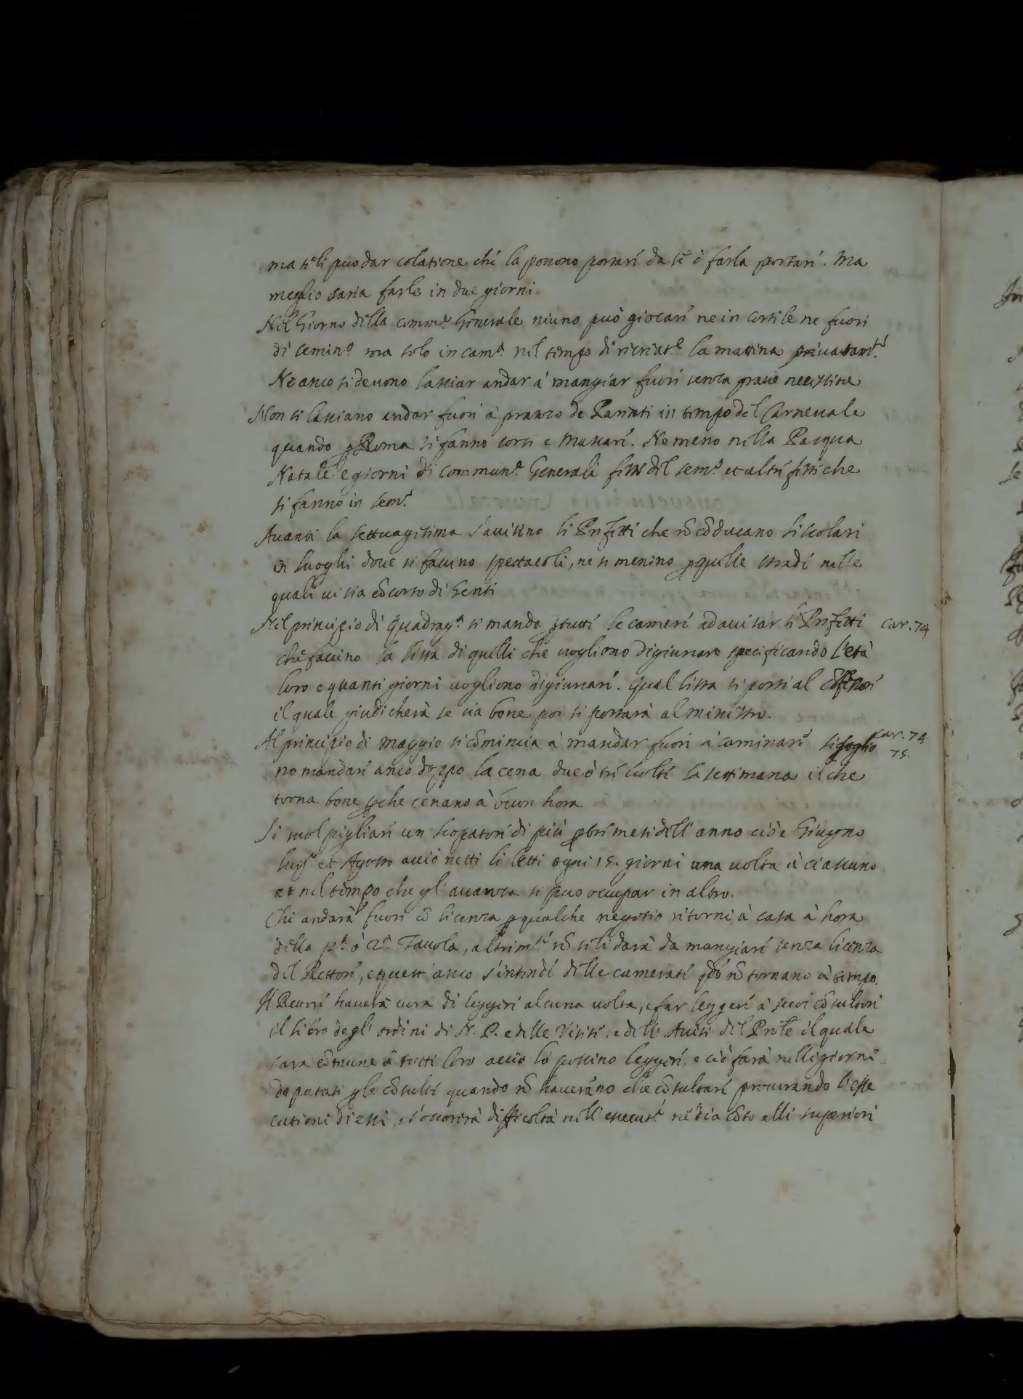 ma se li puo dar colatione che la possono portare da se ò farla portare. Ma
meglio saria farle in due giorni.
Nel Giorno della comm.e Generale niuno può giocare ne in cortile ne fuori
di semin.o ma solo in cam.a nel tempo di ricreat.e la mattina
Ne anco si deuono lassiar andar à mangiar fuori senza graue necessità
Non si lassiano andar fuori à pranzo de Parenti in tempo del Carneuale
quando ꝑ Roma si fanno corsi e mascare. Ne meno nella Pasqua
Natale e giorni di commun.e Generali feste del sem.o et altri festi che
si fanno in sem.o
Auanti la settuagesima s'auisino li Prefetti che nõ cõducano li scolari
in luoghi doue si faccino spettacoli, ne si menino ꝑ quelle strade nelle
quali ui sia cõcorso di Genti
Nel principio di Quadrag.a si mando ꝑ tutti le camere ad auisar li Prefetti car. 74
che faccino la lista di quelli che uogliono digiunare specificando l'età
loro e quanti giorni uogliono digiunare. Qual lista si porti al
il quale giudicherà se sia bone poi si portarà al ministro.
Al principio di maggio si cõmincia à mandar fuori à caminare si soglio car. 74
75.
no mandare anco doppo la cena due ò tre uolte la settimana il che
torna bone ꝑche cenano à buon hora
Si suol pigliare un scopatore di più ꝑ tre mesi dell' anno cioè Giugno
lug.o et Agosto acciò netti li letti ogni 15. giorni una uolta à ciascuno
et nel tempo che gl' auanza si puo occupar in altro.
Chi andarà fuori cõ licenza ꝑ qualche negotio ritorni à casa à hora
della p.a ò 2.a Tauola, altrim.te nõ se li darà da mangiare senza licenza
del Rettore, e questi anco s'intende delle camerate nõ tornano à tempo.
Il Rettore hauerà cura di leggere alcuna uolta, e far leggere à suoi cõsultori
il libro degl' ordini di N. P. e delle Visite, e delli Auisi del Prõle il quale
sara cõmune à tutti loro accio lo possino leggere, e ciò farà nelli giorni
deputati ꝑ le cõsulte quando nõ haueranno che cõsultare procurando l'esse
cutione di essi, e s'occorrerà difficoltà nell' essecut.e ne dia cõto alli superiori